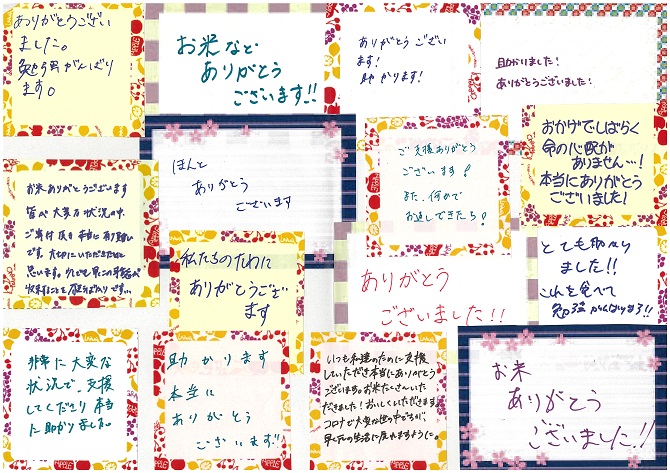 ありがとうござい
ました。
勉強がんばり
ます。
お米など
ありがとう
ございます!!
ありがとう ござい
ます!
助かります!
助かりました!
ありがとうございました!
お米ありがとうございます
皆々大変な状況の中、
ご寄付頂き本当に有り難い
です。大切にいただきたいと
思います。
ほんと
ありがとう
ございます
ご支援ありがとう
ございます!
また、何かで
お返しできたら!
おかげでしばらく
命の心配が
ありません…!
本当にありがとう
ございました!
私たちのために
ありがとうござい
ます
ありがとう
ございました!!
とても助かり
ました!!
これを食べて
勉強がんばります!!
非常に大変な
状況で、支援
してくださり本当
に助かりました。
助かります
本当に
ありがとう
ございます!!
いつも私達のために支援
していただき本当にありがとう
ございます。お米たくさんいた
だきました!おいしくいただきます。
コロナで大変な世の中ですが、
早く元の生活に戻れますように。
お米
ありがとう
ございました!!